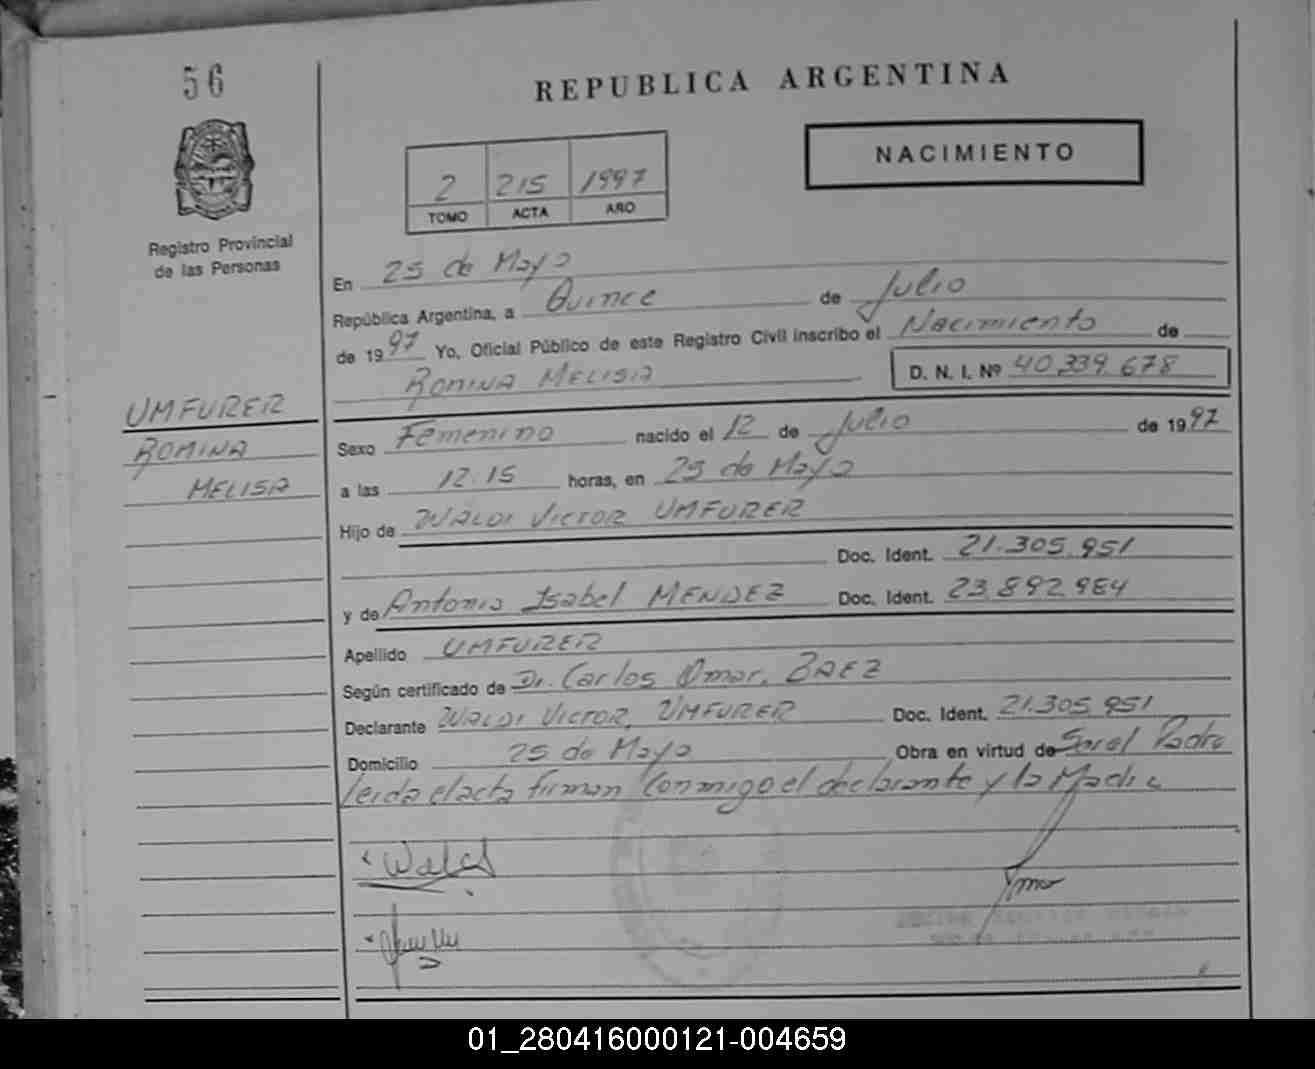 56
REPUBLICA ARGENTINA
NACIMIENTO
2 215 1997
TOMO ACTA AÑO
Registro Provincial
de las Personas
En 25 de Mayo
República Argentina, a Quince de Julio
de 1997 Yo, Oficial Público de este Registro Civil inscribo el Nacimiento de
ROMINA MELISA D. N. I. Nº 40.339.678
UMFURER
ROMINA
MELISA
Sexo Femenino nacido el 12 de Julio de 1997
a las 12.15 horas, en 25 de Mayo
Hijo de WALDI VICTOR UMFURER
Doc. Ident. 21.305.951
y de Antonia Isabel MENDEZ Doc. Ident. 23.892.984
Apellido UMFURER
Según certificado de Dr. Carlos Omar. BAEZ
Declarante WALDI VICTOR, UMFURER Doc. Ident. 21.305.951
Domicilio 25 de Mayo Obra en virtud de Ser el Padre
leida el acta firman conmigo el declarante y la Madre
01_280416000121-004659